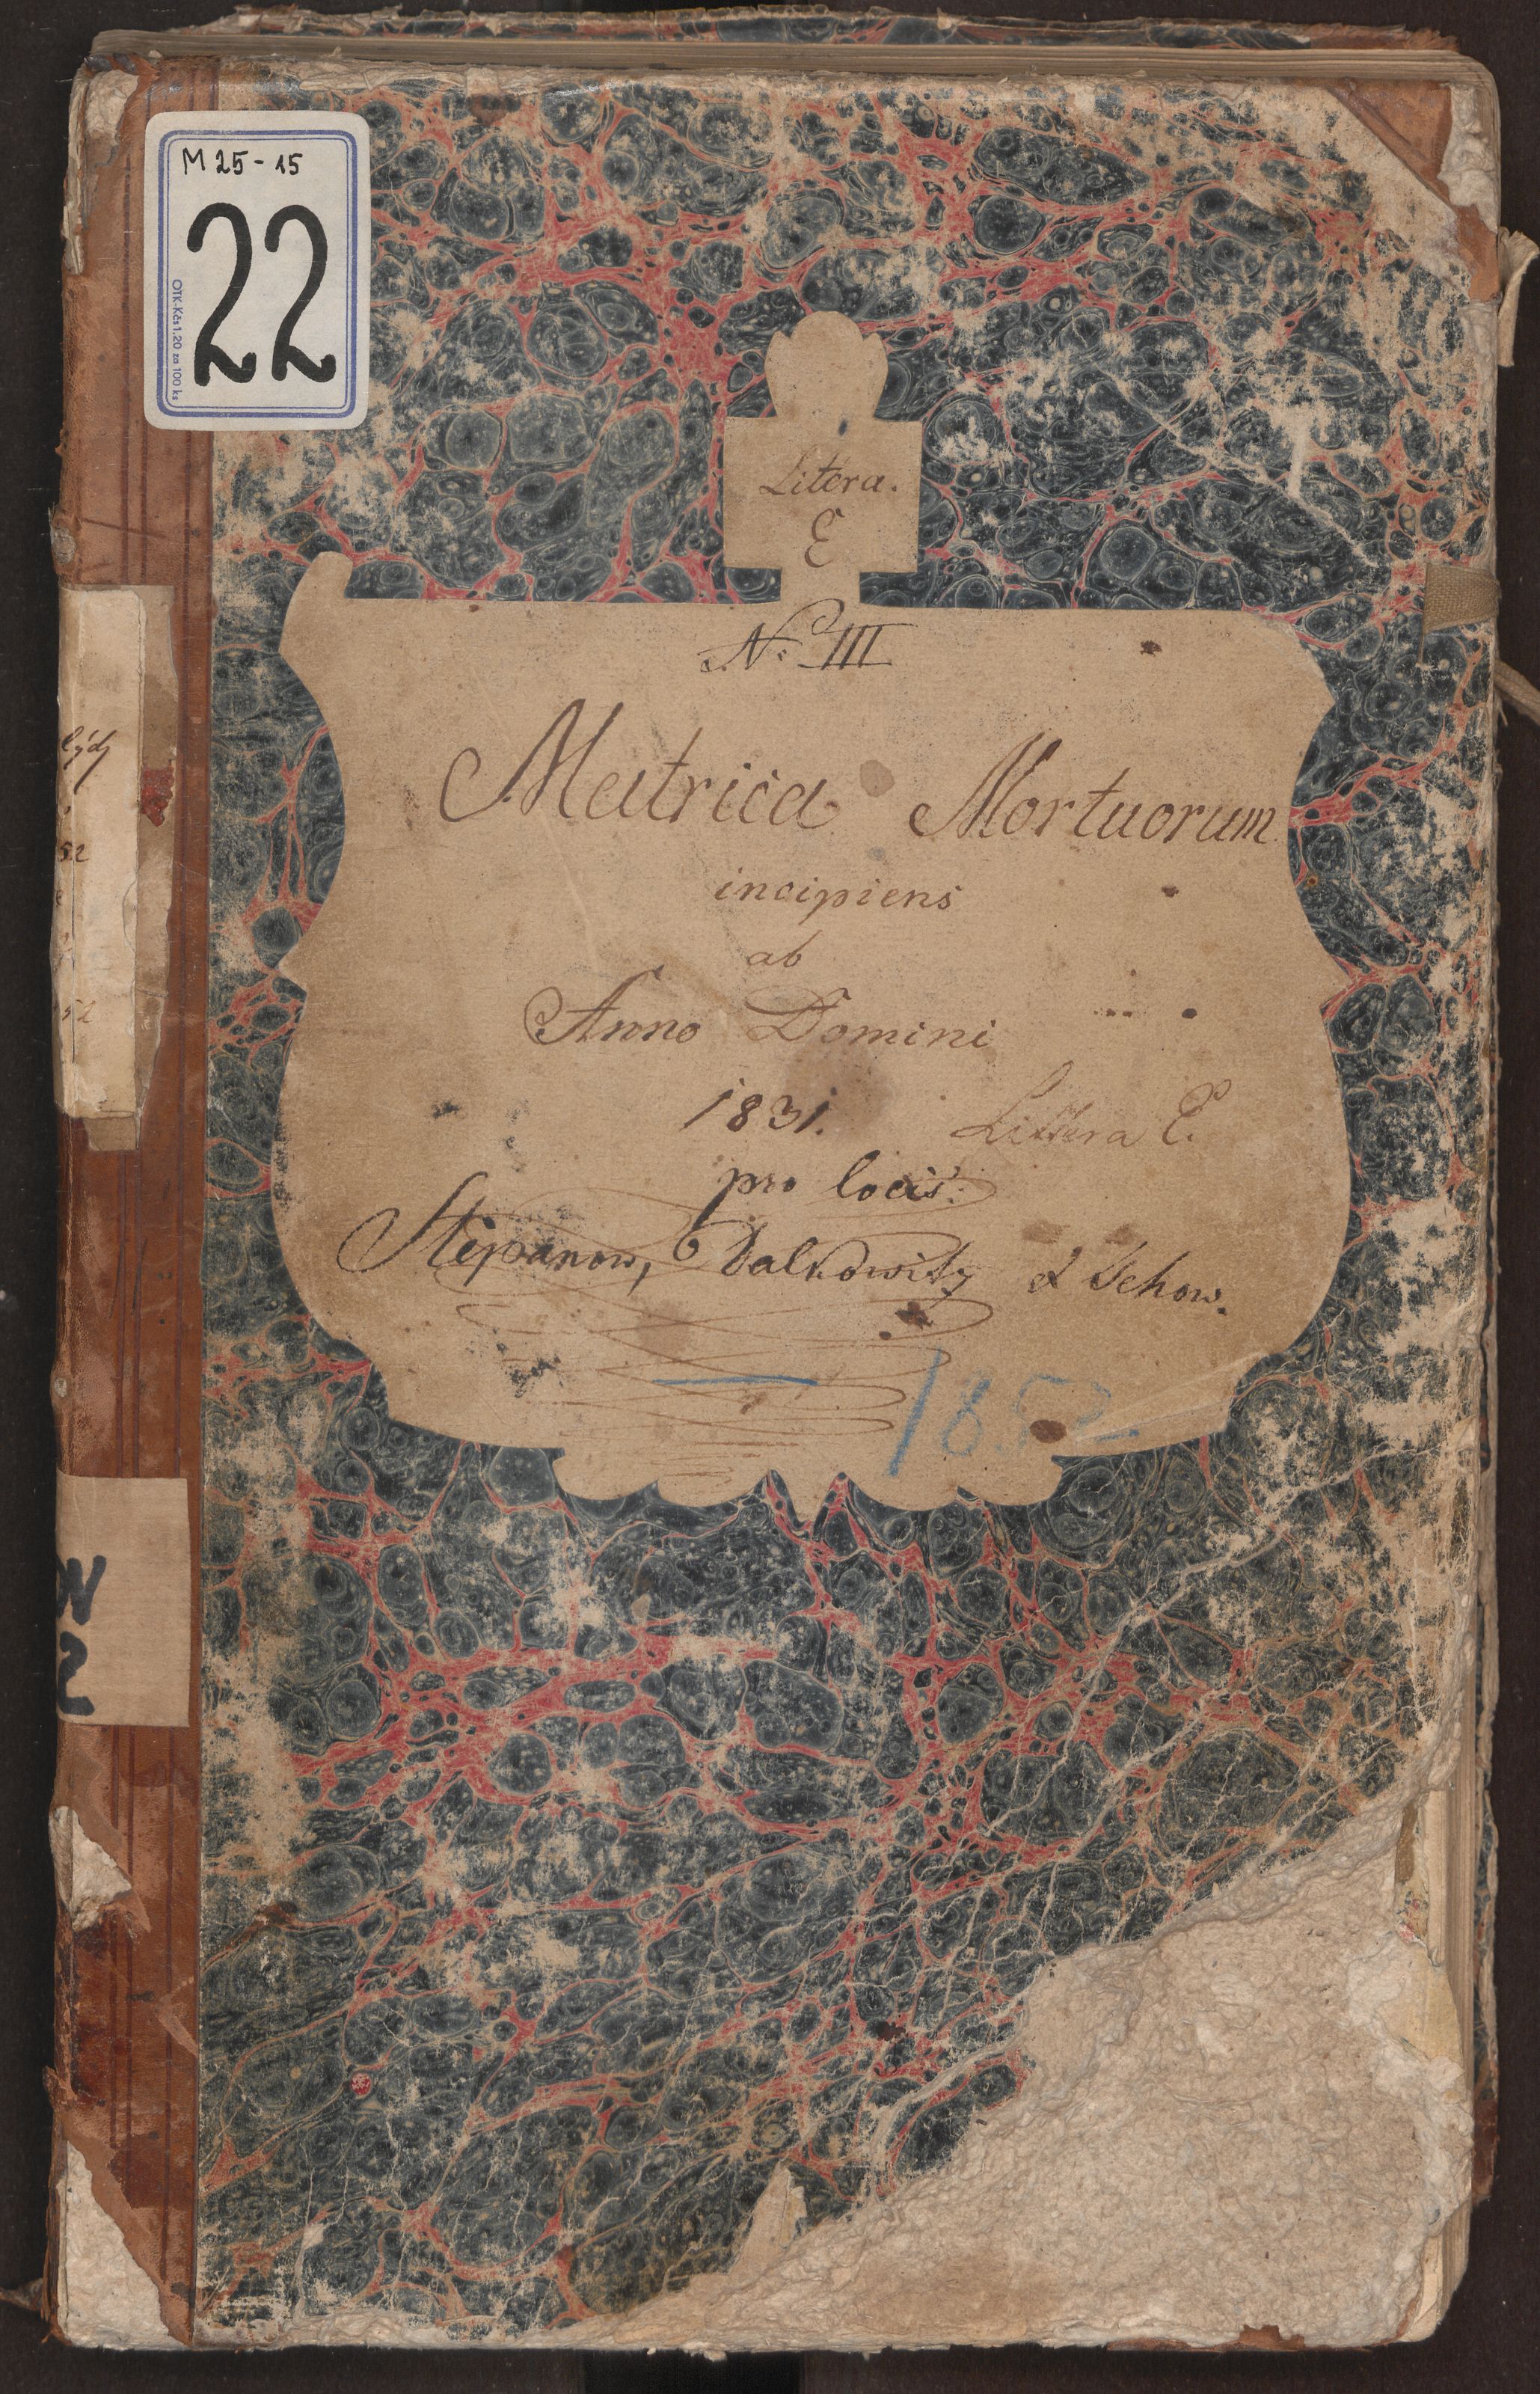 M 25-15
22
OTK-Kčs 1.20 za 100 ks
Litera.
E
No III
Matrica Mortuorum
incipiens
ab
Anno Domini
1831. Littera E.
pro locis:
Stepanow, Dalkowitz & Schow.
1852
52
W
2